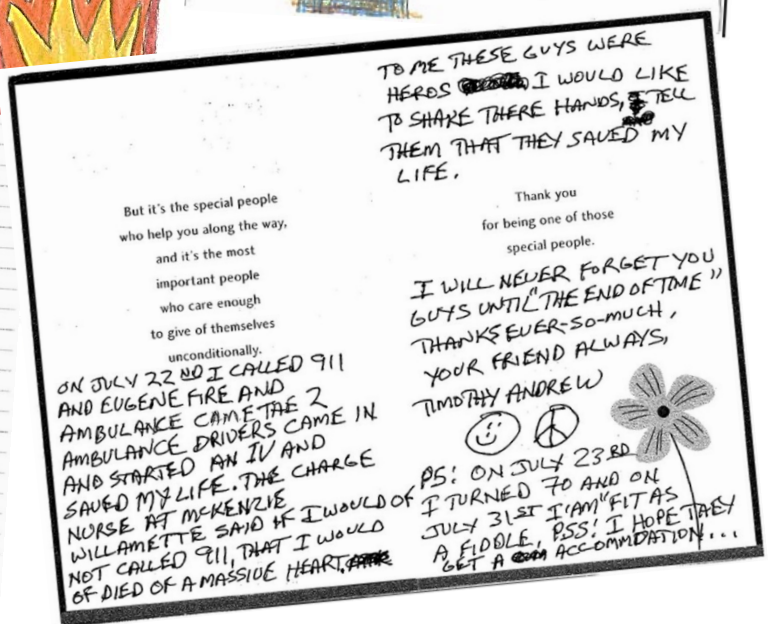 But it's the special people
who help you along the way,
and it's the most
important people
who care enough
to give of themselves
unconditionally.
ON JULY 22ND I CALLED 911
AND EUGENE FIRE AND
AMBULANCE CAME TAE 2
AMBULANCE DRIVERS CAME IN
AND STARTED AN IV AND
SAVED MY LIFE. THE CHARGE
NURSE AT MCKENZIE
WILLAMETTE SAID IF I WOULD OF
NOT CALLED 911, THAT I WOULD
OF DIED OF A MASSIVE HEART.
TO ME THESE GUYS WERE
HEROS I WOULD LIKE
TO SHAKE THERE HANDS, TELL
THEM THAT THEY SAVED MY
LIFE.
Thank you
for being one of those
special people.
I WILL NEVER FORGET YOU
GUYS UNTIL "THE END OF TIME"
THANKS EVER-SO-MUCH,
YOUR FRIEND ALWAYS,
TIMOTHY ANDREW
PS! ON JULY 23RD
I TURNED 70 AND ON
JULY 31ST I'AM "FIT AS
A FIDDLE, PSS! I HOPE THEY
GET A ACCOMMDATION...